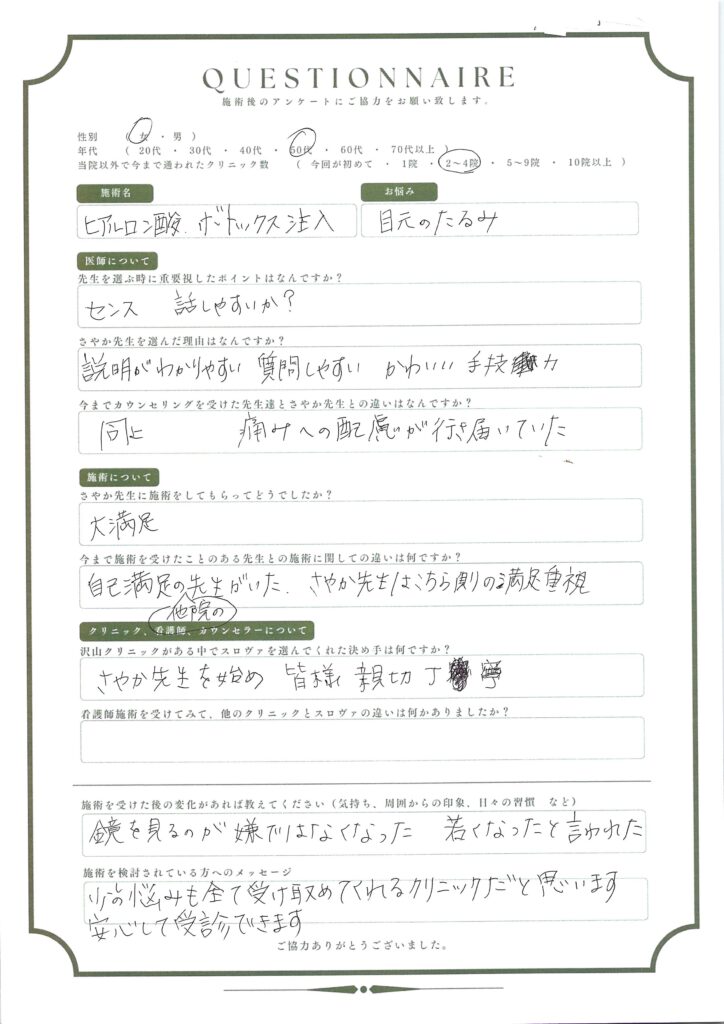 QUESTIONNAIRE
施術後のアンケートにご協力をお願い致します。
性別 ( 女 ・ 男 )
年代 ( 20代 ・ 30代 ・ 40代 ・ 50代 ・ 60代 ・ 70代以上 )
当院以外で今まで通われたクリニック数 ( 今回が初めて ・ 1院 ・ 2〜4院 ・ 5〜9院 ・ 10院以上 )
施術名 お悩み
ヒアルロン酸. ボトックス注入 目元のたるみ
医師について
先生を選ぶ時に重要視したポイントはなんですか?
センス 話しやすいか?
さやか先生を選んだ理由はなんですか?
説明がわかりやすい 質問しやすい かわいい 手技力
今までカウンセリングを受けた先生達とさやか先生との違いはなんですか?
同上 痛みへの配慮が行き届いていた
施術について
さやか先生に施術をしてもらってどうでしたか?
大満足
今まで施術を受けたことのある先生との施術に関しての違いは何ですか?
自己満足の先生がいた. さやか先生はこちら側の満足重視
他院の
クリニック、看護師、カウンセラーについて
沢山クリニックがある中でスロヴァを選んでくれた決め手は何ですか?
さやか先生を始め 皆様 親切 丁寧
看護師施術を受けてみて、他のクリニックとスロヴァの違いは何かありましたか?
施術を受けた後の変化があれば教えてください(気持ち、周囲からの印象、日々の習慣 など)
鏡を見るのが嫌ではなくなった 若くなったと言われた
施術を検討されている方へのメッセージ
悩みも全て受け止めてくれるクリニックだと思います
安心して受診できます
ご協力ありがとうございました。